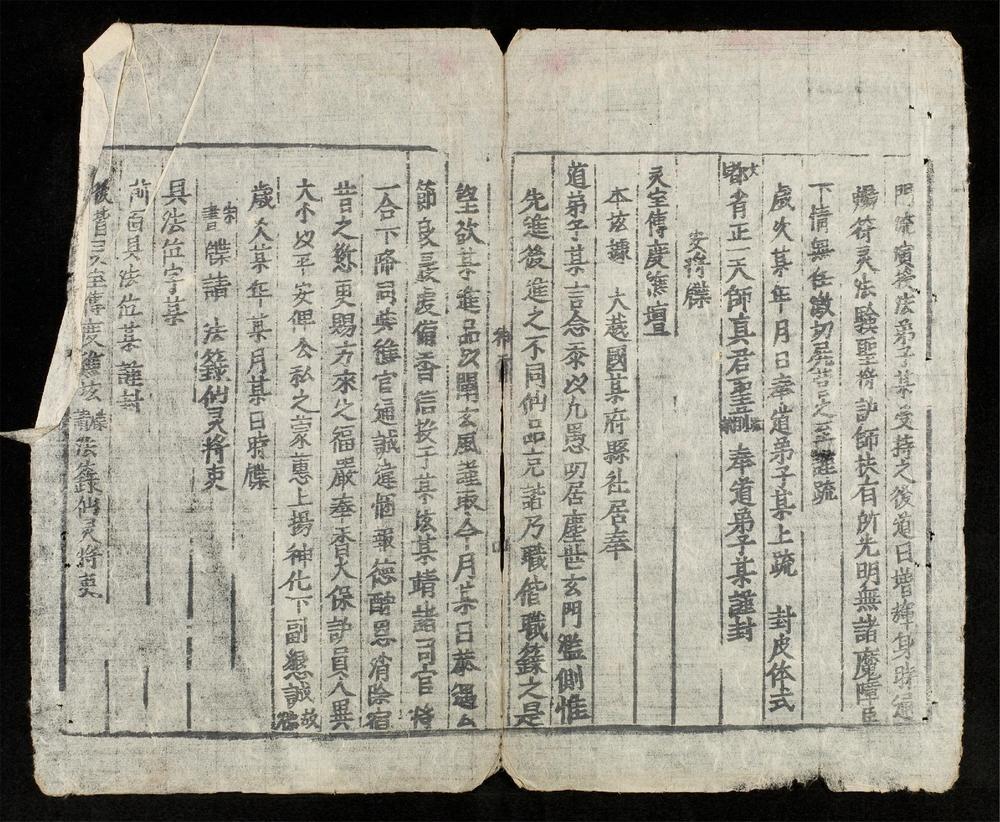 門流演教法弟子某受持之後道日增輝身時通
暢符灵法驗聖將訣師扶右所先明無諸魔障臣
下情無任激切屏营之至謹疏
歲次某年月日奉道弟子某上疏 封皮体式
都省正一天師真君 奉道弟子某謹封
安將牒
灵宝傳度醮壇
本玆據 大越國某府縣社居奉
道弟子某言念忝以九愚叨居塵世玄門濫側惟
先進後進之不同仙品克諧乃職偕職籙之是
坚欲某進品以闡玄風謹取今月某日恭遇厶
節良晨虔備香信投于某玆某靖諸司官將
一合下啼同與雜官通誠違個報德酬恩消除宿
昔之愆更賜方來之福嚴奉香火保訣員人異
大不以平安俾公私之蒙惠上揚神化下副懇誠故
歲次某年某月某日時牒
書牒請 法籙仙灵將吏
具法位字某
前面具法位某謹封
後書灵宝傳度醮玆牒請法籙仙灵將吏